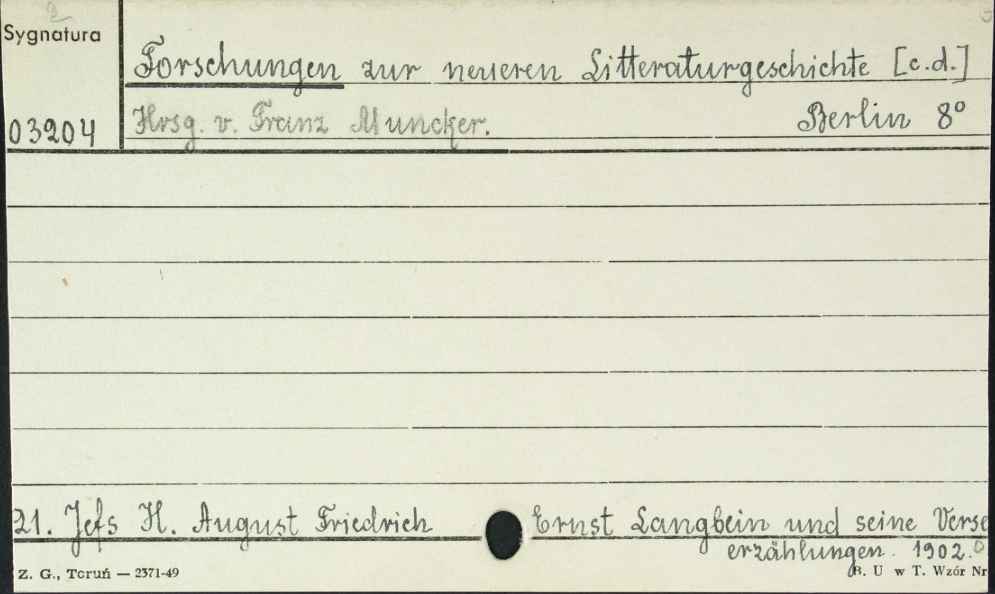 2
Sygnatura
Forschungen zur neueren Litteraturgeschichte [c.d.]
03204
Hrsg. v. Franz Muncker. Berlin 8°
21. Jefs H. August Friedrich Ernst Langbein und seine Verse
erzählungen. 1902.
Z. G., Toruń — 2371-49 B. U w T. Wzór Nr